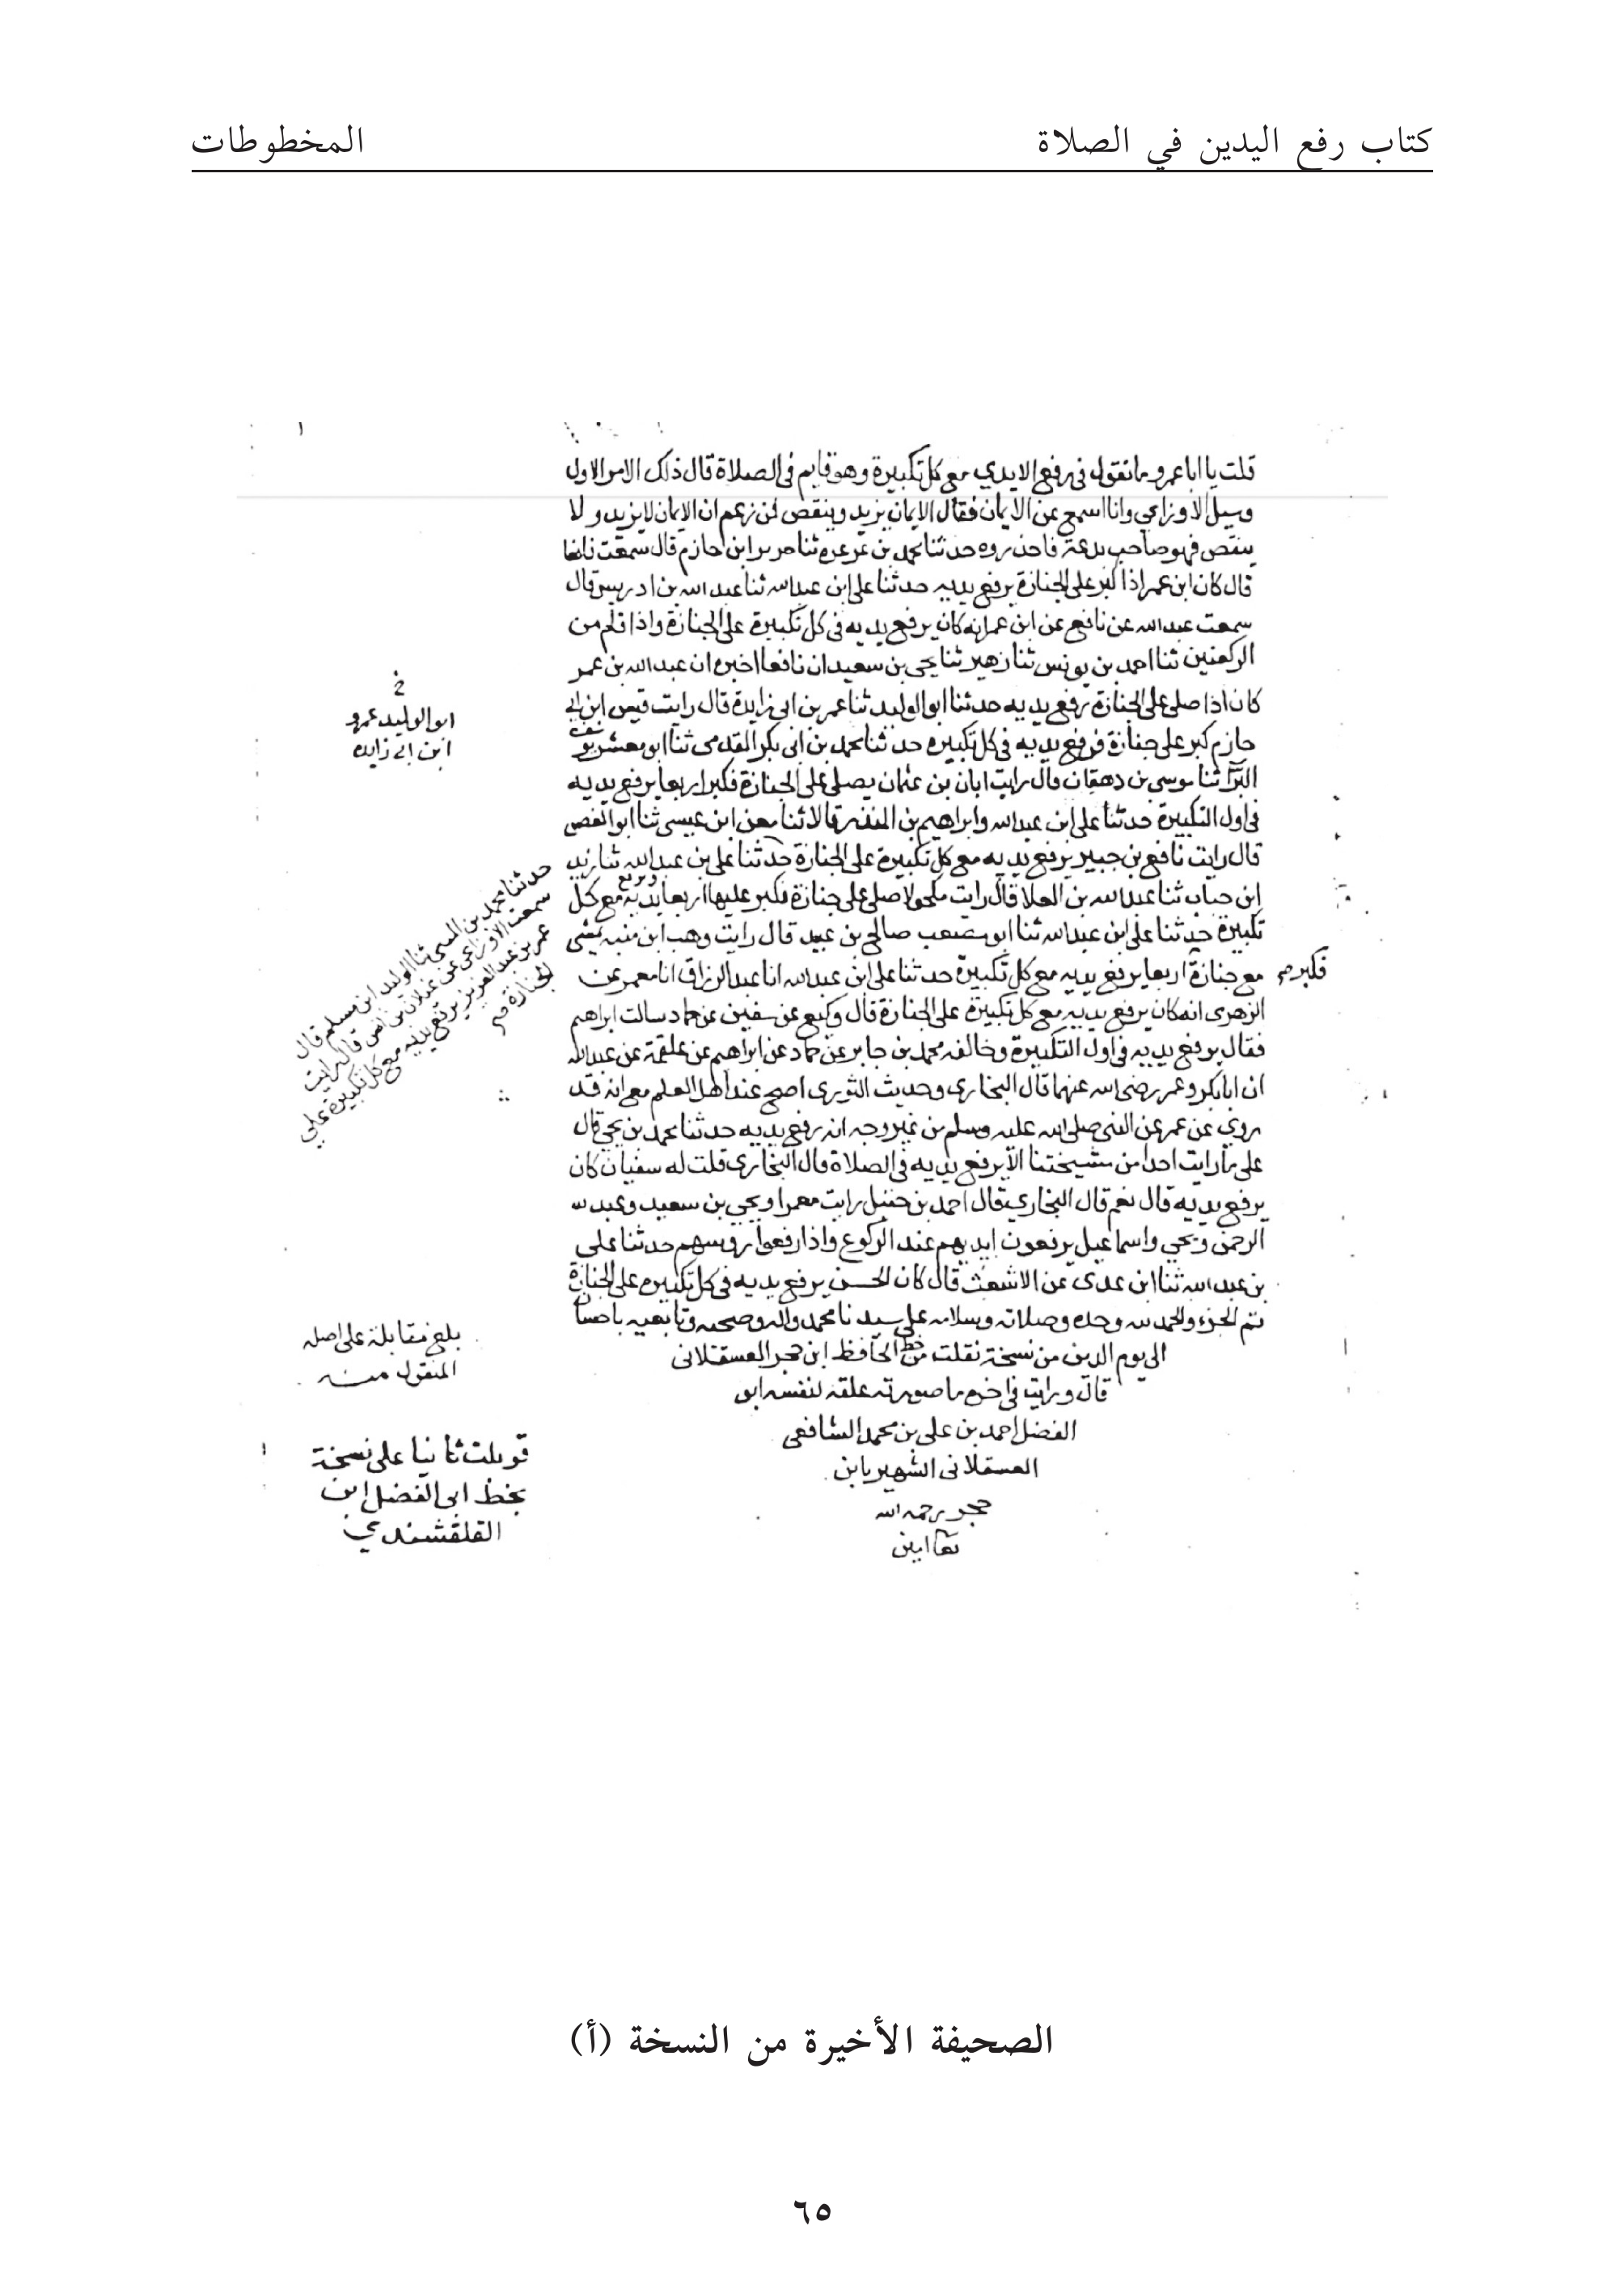 كتاب رفع اليدين في الصلاة
المخطوطات
قلت يا ابا عمرو ما تقول في رفع الايدي مع كل تكبيرة وهو قايم في الصلاة قال ذلك الامر الاول
وسيل الاوزاعي وانا اسمع عن الايمان فقال الايمان يزيد وينقص فمن زعم ان الايمان لا يزيد ولا
ينقص فهو صاحب بدعة فاحذروه حدثنا محمد بن عرعرة ثنا جرير ابن حازم قال سمعت نافعا
قال كان ابن عمر اذا كبر على الجنازة يرفع يديه حدثنا على ابن عبد الله ثنا عبد الله بن ادريس قال
سمعت عبد الله عن نافع عن ابن عمر انه كان يرفع يديه في كل تكبيرة على الجنازة واذا قام من
الركعتين ثنا احمد بن يونس ثنا زهير ثنا يحي بن سعيد ان نافعا اخبره ان عبد الله بن عمر
كان اذا صلى على الجنازة رفع يديه حدثنا ابو الوليد ثنا عمر بن ابي زايدة قال رايت قيس ابن ابي
حازم كبر على جنازة فرفع يديه في كل تكبيره حدثنا محمد بن ابي بكر المقدمى ثنا ابو معشر يوسف
البرآ ثنا موسى بن دهقان قال رايت ابان بن عثمان يصلي على الجنازة فكبر اربعا يرفع يديه
في اول التكبيرة حدثنا على ابن عبد الله وابراهيم بن المنذر قالا ثنا معن ابن عيسى ثنا ابو الغصن
قال رايت نافع بن جبير يرفع يديه مع كل تكبيرة على الجنازة حدثنا علي بن عبد الله ثنا زيد
ابن حباب ثنا عبد الله بن العلا قال رايت مكحولا صلى على جنازة فكبر عليها اربعا ويرفع يديه مع كل
تكبيرة حدثنا على ابن عبد الله ثنا ابو مصعب صالح بن عبيد قال رايت وهب ابن منبه يمشي
مع جنازة اربعا يرفع يديه مع كل تكبيرة حدثنا على ابن عبد الله انا عبد الرزاق انا معمر عن
الزهرى انه كان يرفع يديه مع كل تكبيرة على الجنازة قال وكيع عن سفين عن حماد سالت ابراهيم
فقال يرفع يديه في اول التكبيرة وخالفه محمد بن جابر عن حماد عن ابراهيم عن علقمة عن عبد الله
ان ابا بكر وعمر رضى الله عنهما قال البخارى وحديث الثورى اصح عند اهل العلم مع انه قد
روي عن عمر عن النبي صلى الله عليه وسلم من غير وجه انه رفع يديه حدثنا محمد بن يحي قال
على ما رايت احدا من مشيختنا الا يرفع يديه في الصلاة قال البخارى قلت له سفيان كان
يرفع يديه قال نعم قال البخاري قال احمد بن حنبل رايت معمرا ويحي بن سعيد وعبد
الرحمن ويحي واسماعيل يرفعون ايديهم عند الركوع واذا رفعوا روسهم حدثنا على
بن عبد الله ثنا ابن عدى عن الاشعث قال كان الحسن يرفع يديه في كل تكبيره على الجنازة
تم الجزء والحمد لله وحده وصلاته وسلامه على سيدنا محمد واله وصحبه وتابعيه باحسان
الى يوم الدين من نسخة نقلت من خط الحافظ ابن حجر العسقلانى
قال ورايت في اخره ما صورته علقه لنفسه ابو
الفضل احمد بن على بن محمد الشافعى
العسقلانى الشهير بابن
حجر رحمه الله
تعا امين
خ
ابو الوليد عمرو
ابن ابي زايده
حدثنا محمد بن المثنى ثنا الوليد ابن مسلم قال
سمعت الاوزاعى عن غيلان بن انس قال رايت
عمر بن عبد العزيز يرفع يديه مع كل تكبيرة على
الجنازة صح
فكبر
بلغ مقابلة على اصله
المنقول منه
قوبلت ثانيا على نسخة
بخط ابى الفضل ابن
القلقشندي
الصحيفة الأخيرة من النسخة (أ)
٦٥